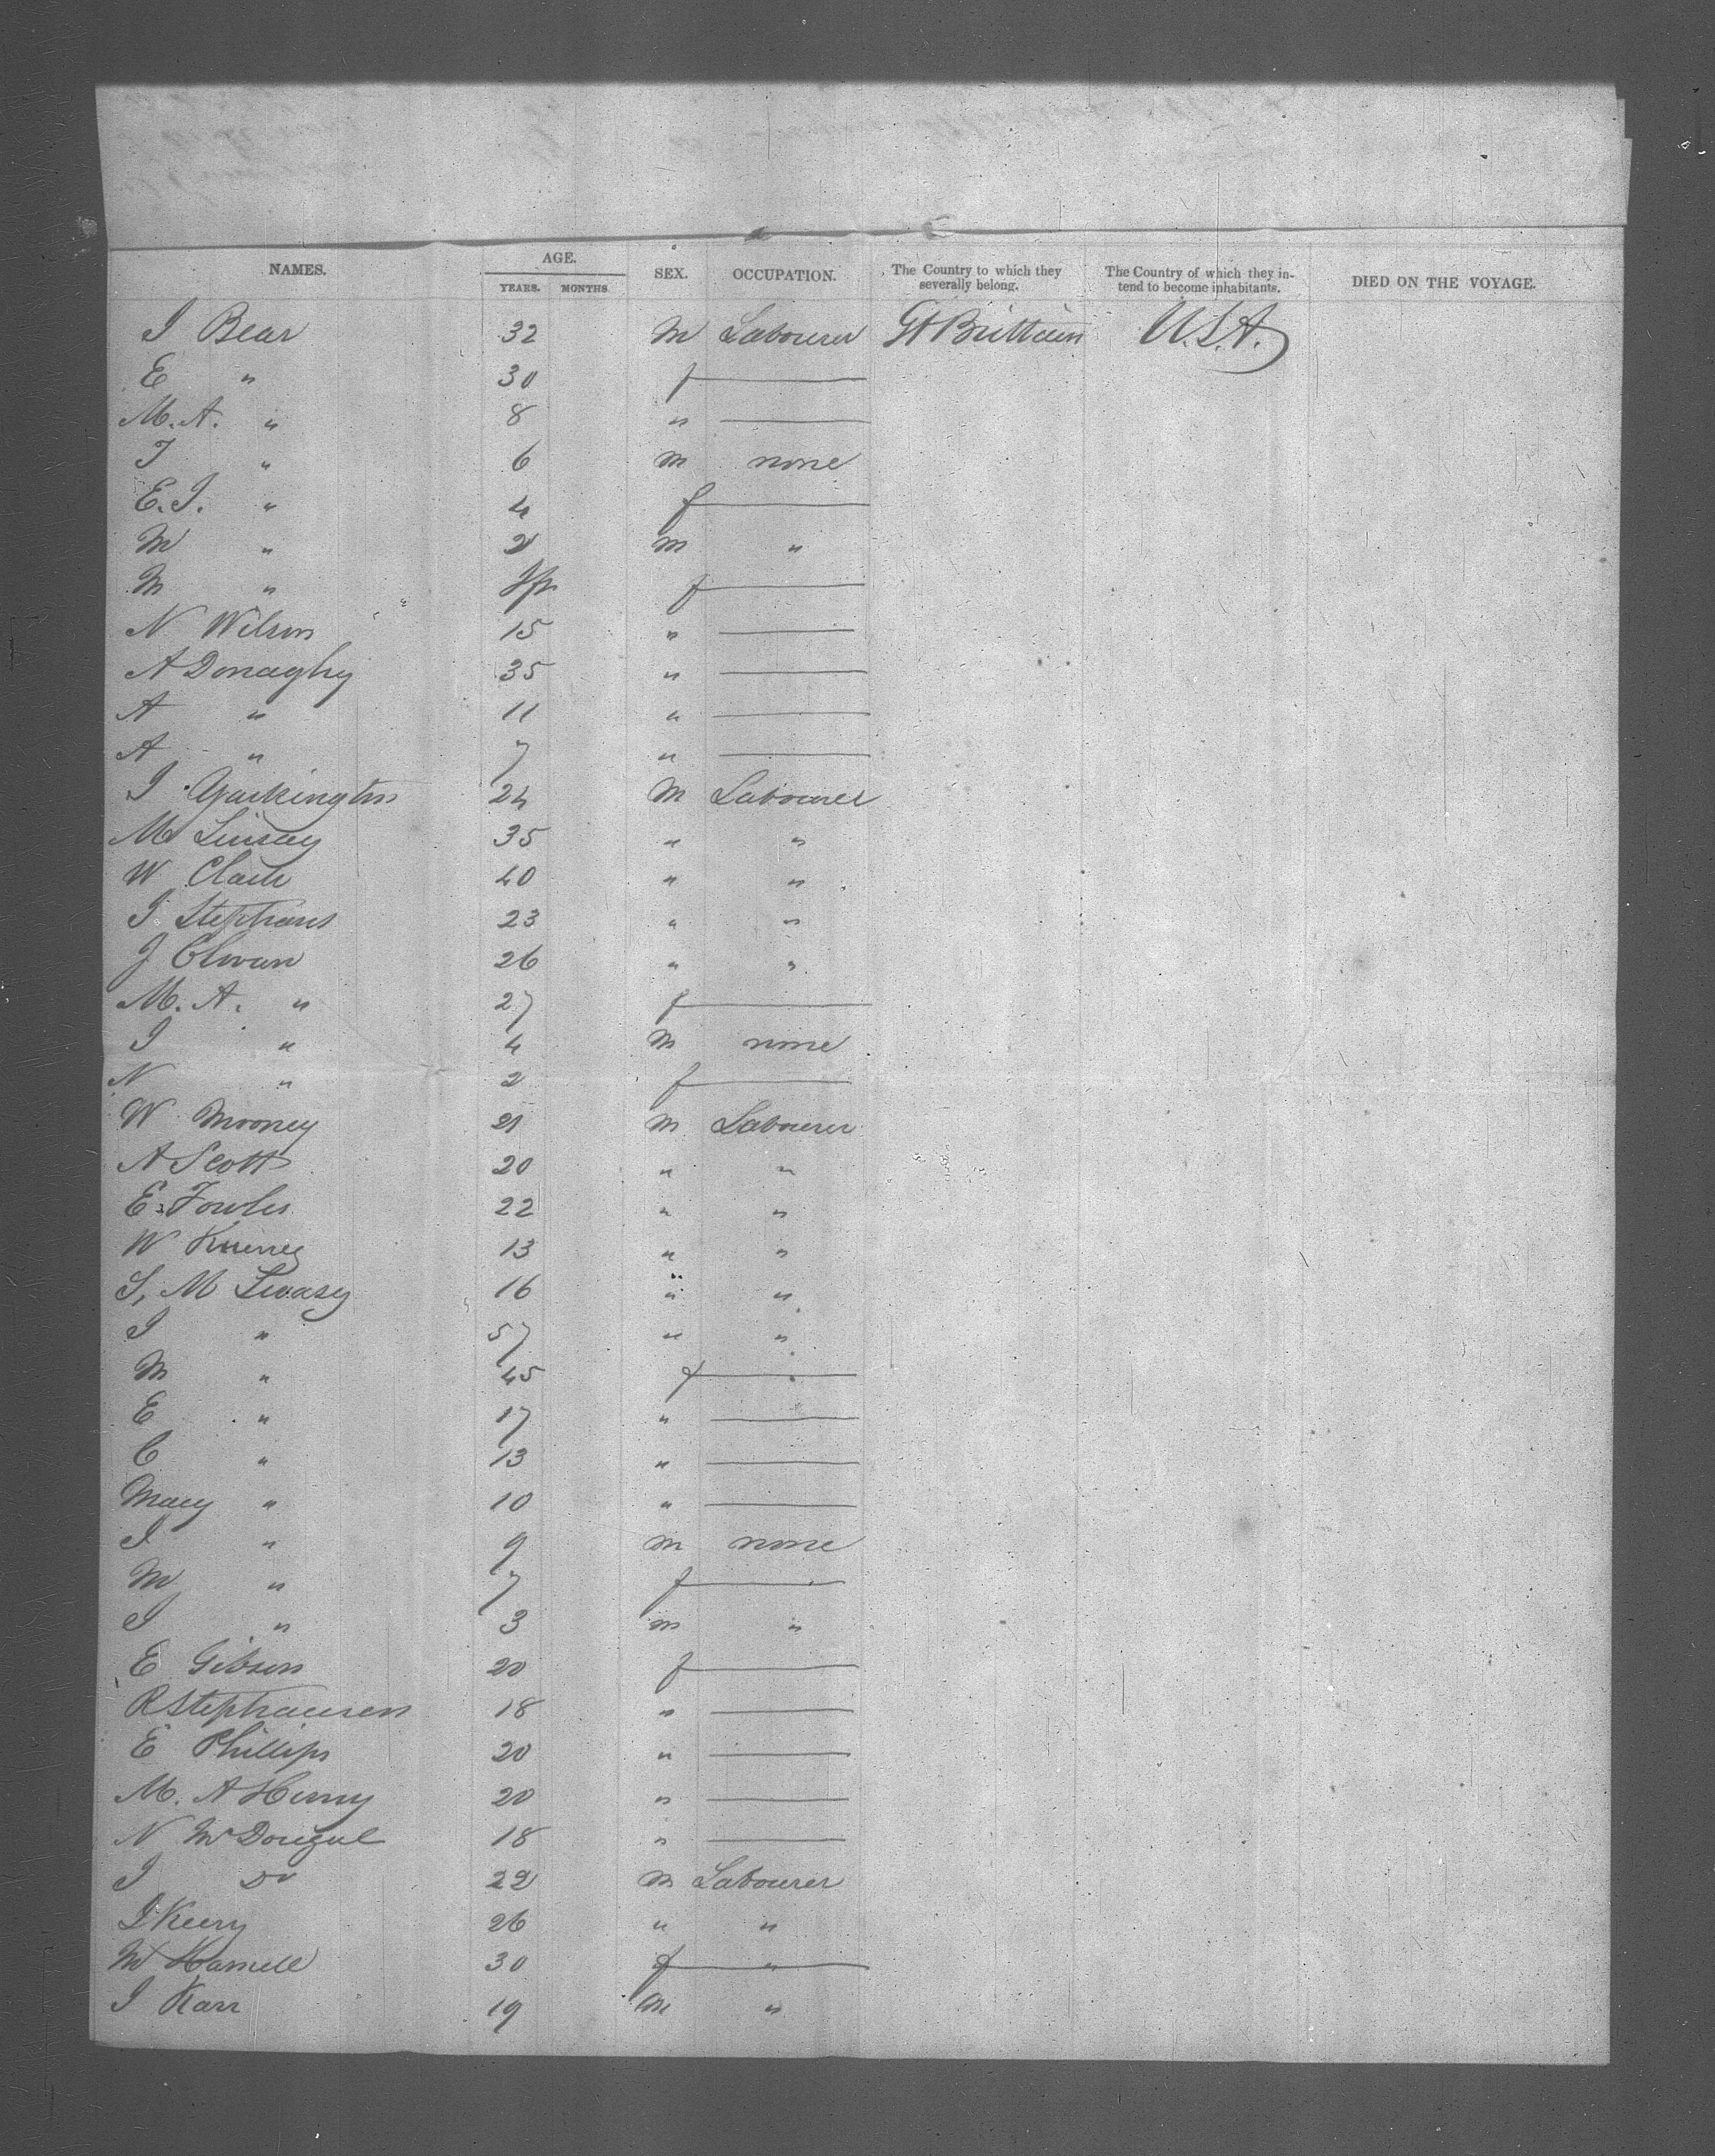 NAMES. AGE. YEARS. MONTHS. SEX. OCCUPATION. The Country to which they severally belong. The Country of which they intend to become inhabitants. DIED ON THE VOYAGE.
I Bear 32 M Labourer Gt Brittain U.S.A.
E " 30 f
M. A. " 8 "
T " 6 m none
E. I. " 4 f
M " 2 m "
M " f
N Wilson 15 "
A Donaghy 35 "
A " 11 "
A " 7 "
I 24 M Labourer
M Linsay 35 " "
W Clark 40 " "
I Stephans 23 " "
J 26 " "
M. A. " 27 f
I " 4 m none
N " 2 f
W Mooney 21 m Labourer
A Scott 20 " "
E Fowler 22 " "
W 13 " "
S, M 16 " "
I " 57 " "
M " 45 f
E " 17 "
C " 13 "
Mary " 10 "
I " 9 m none
M " 7 f
I " 3 m "
E Gibson 20 f
R 18 "
E Phillips 20 "
M. A Henry 20 "
N McDougal 18 "
I Do 22 m Labourer
I Keery 26 " "
M 30 f "
I Karr 19 m "